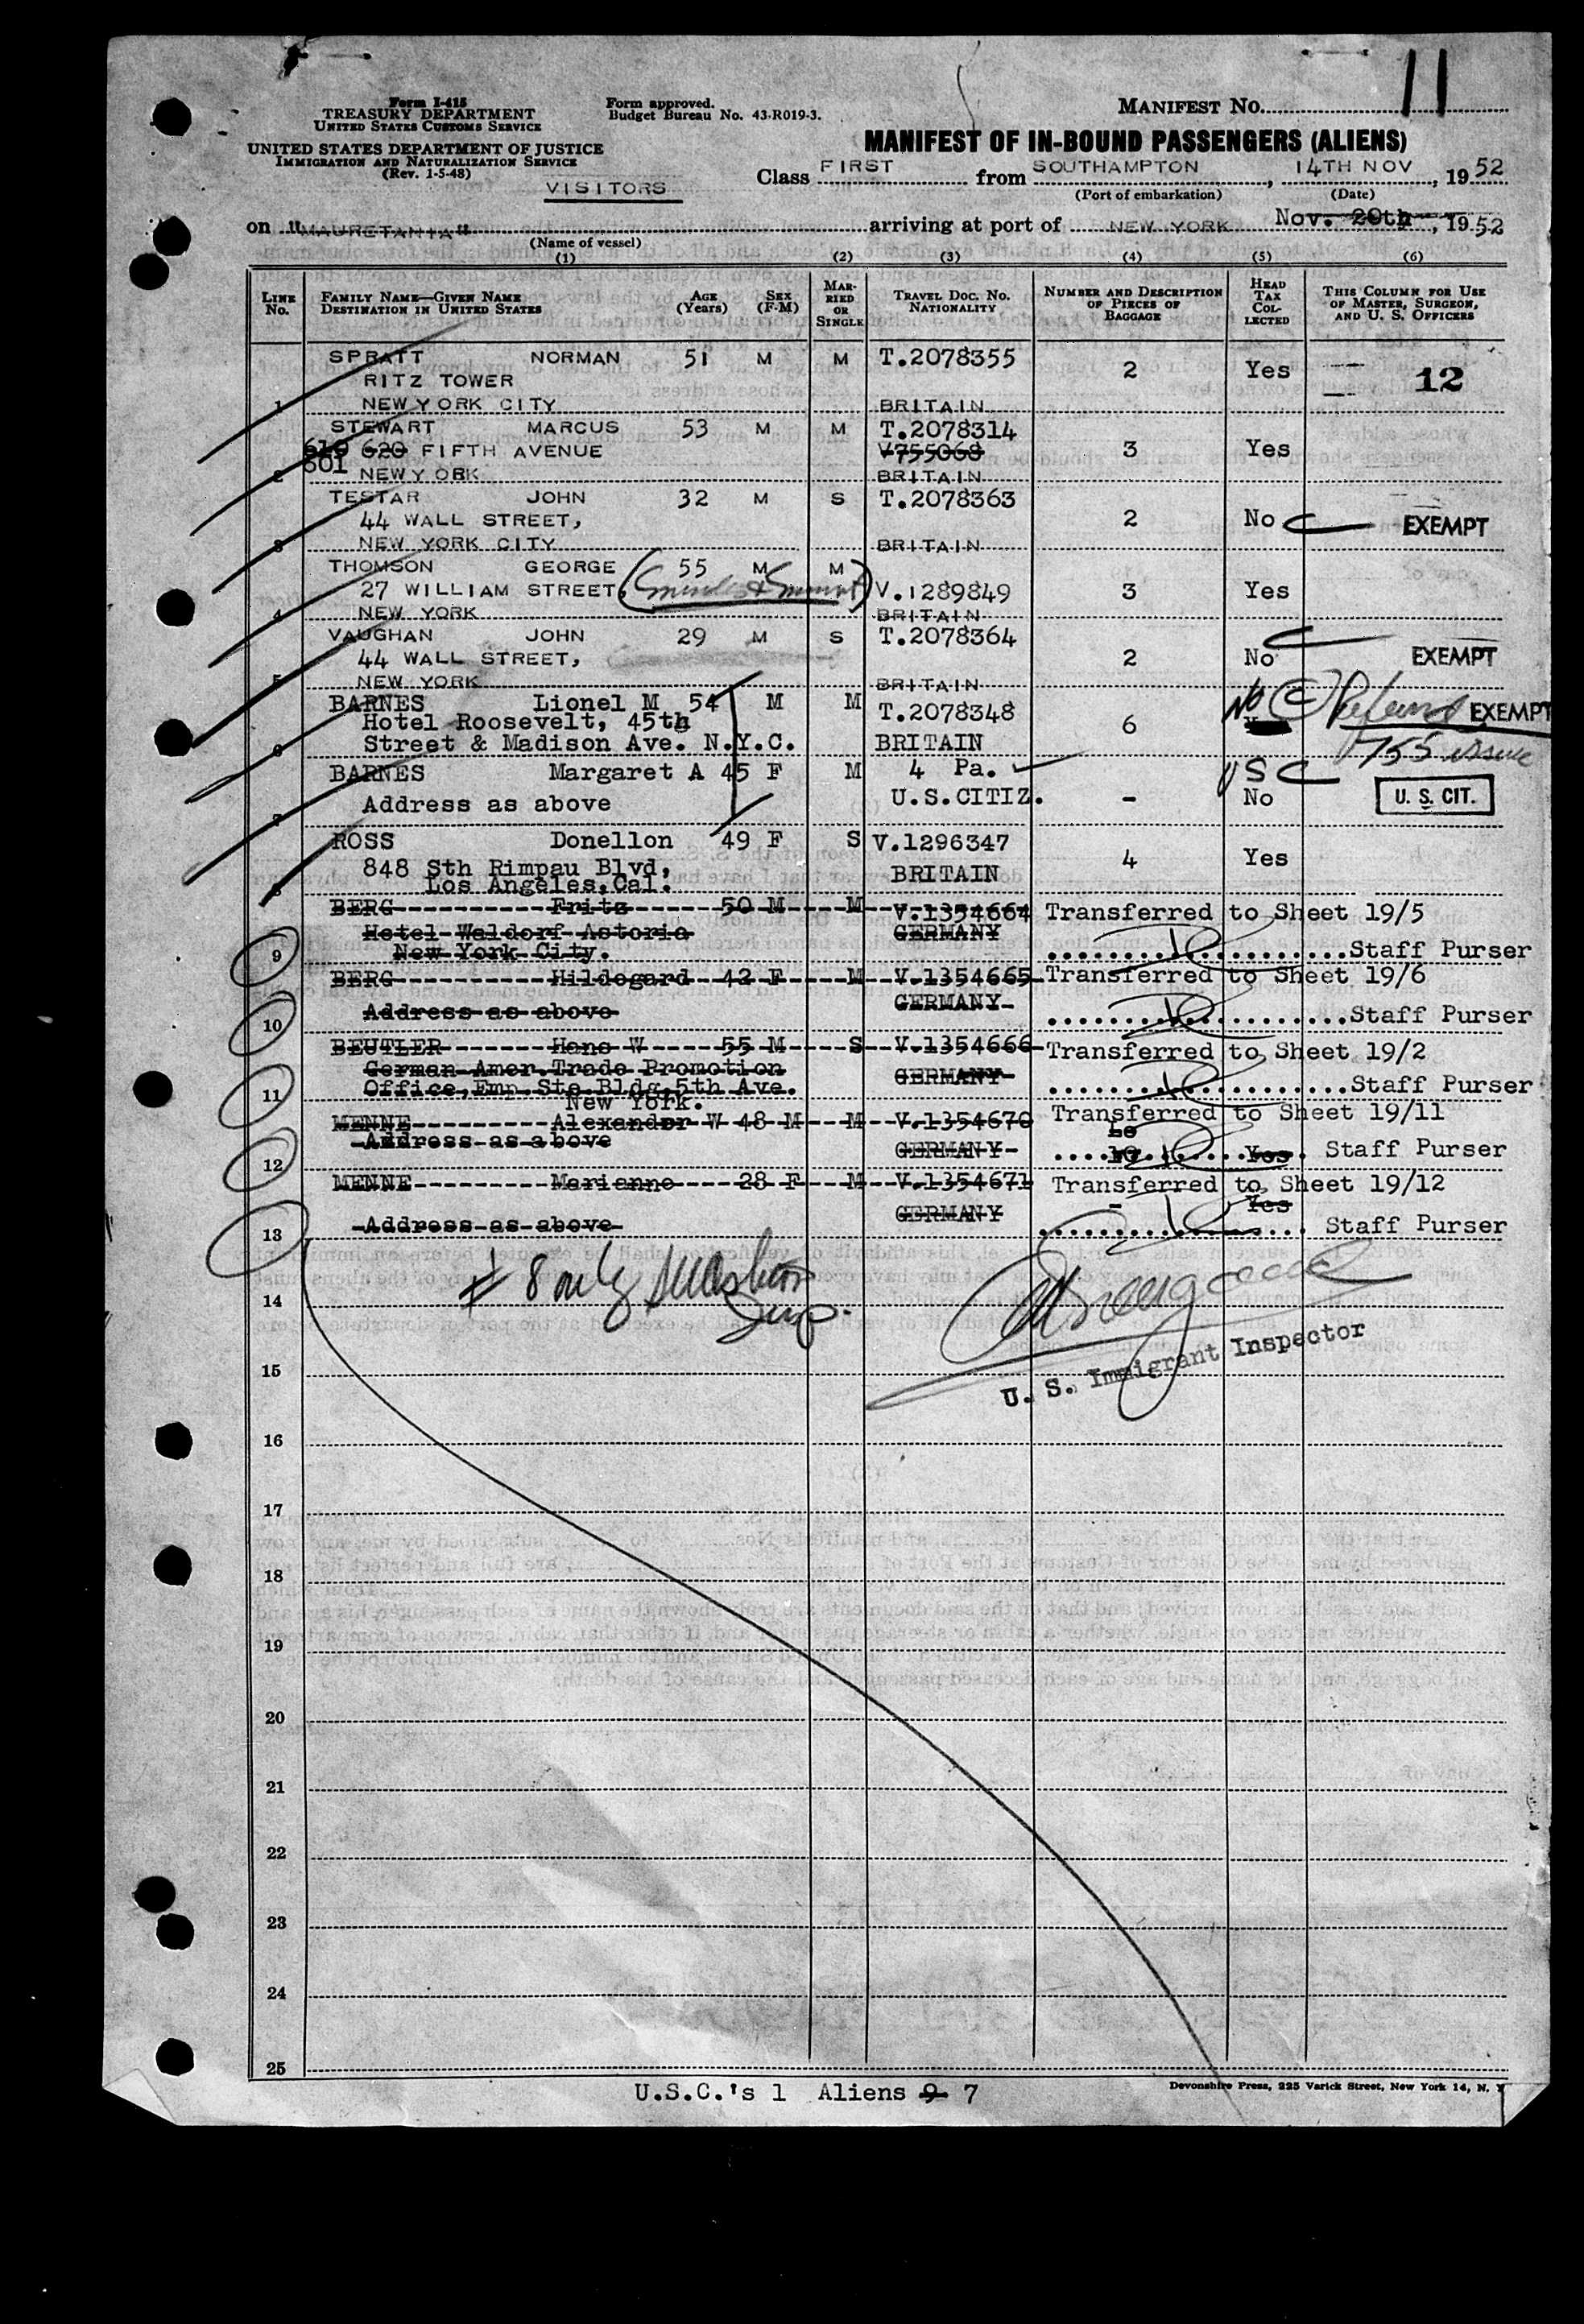 11
Form I-415
TREASURY DEPARTMENT
UNITED STATES CUSTOMS SERVICE
UNITED STATES DEPARTMENT OF JUSTICE
IMMIGRATION AND NATURALIZATION SERVICE
(Rev. 1-5-48)
Form approved.
Budget Bureau No. 43-R019-3.
MANIFEST NO.
MANIFEST OF IN-BOUND PASSENGERS (ALIENS)
VISITORS
Class FIRST from SOUTHAMPTON, 14TH NOV, 1952
(Port of embarkation) (Date)
on "MAURETANIA" arriving at port of NEW YORK Nov. 20th, 1952
(Name of vessel)
(1) (2) (3) (4) (5) (6)
LINE No. FAMILY NAME—GIVEN NAME DESTINATION IN UNITED STATES AGE (Years) SEX (F-M) MARRIED OR SINGLE TRAVEL DOC. NO. NATIONALITY NUMBER AND DESCRIPTION OF PIECES OF BAGGAGE HEAD TAX COLLECTED THIS COLUMN FOR USE OF MASTER, SURGEON, AND U. S. OFFICERS
SPRATT NORMAN 51 M M T.2078355
RITZ TOWER 2 Yes 12
1 NEW YORK CITY BRITAIN
STEWART MARCUS 53 M M T.2078314
610 620 FIFTH AVENUE V755068 3 Yes
601
2 NEW YORK BRITAIN
TESTAR JOHN 32 M S T.2078363
44 WALL STREET, 2 No EXEMPT
3 NEW YORK CITY BRITAIN
THOMSON GEORGE 55 M M
27 WILLIAM STREET, V.1289849 3 Yes
4 NEW YORK BRITAIN
VAUGHAN JOHN 29 M S T.2078364
44 WALL STREET, 2 No EXEMPT
5 NEW YORK BRITAIN
BARNES Lionel M 54 M M T.2078348 No C EXEMPT
Hotel Roosevelt, 45th 6
6 Street & Madison Ave. N.Y.C. BRITAIN 755
BARNES Margaret A 45 F M 4 Pa. USC
7 Address as above U.S.CITIZ. - No U. S. CIT.
ROSS Donellon 49 F S V.1296347
848 Sth Rimpau Blvd, BRITAIN 4 Yes
8 Los Angeles, Cal.
BERG Fritz 50 M M V.1354664 Transferred to Sheet 19/5
Hotel Waldorf Astoria GERMANY
9 New York City. Staff Purser
BERG Hildegard 42 F M V.1354665 Transferred to Sheet 19/6
10 Address as above GERMANY Staff Purser
BEUTLER Hans W 55 M S V.1354666 Transferred to Sheet 19/2
German Amer. Trade Promotion GERMANY
11 Office, Emp. Ste. Bldg, 5th Ave. Staff Purser
New York.
MENNE Alexander W 48 M M V.1354670 Transferred to Sheet 19/11
12 Address as above GERMANY Yes Staff Purser
MENNE Marianne 28 F M V.1354671 Transferred to Sheet 19/12
- Yes
13 Address as above GERMANY Staff Purser
# 8 only
14 Insp.
U. S. Immigrant Inspector
15
16
17
18
19
20
21
22
23
24
25
U.S.C.'s 1 Aliens 9 7
Devonshire Press, 225 Varick Street, New York 14, N. Y